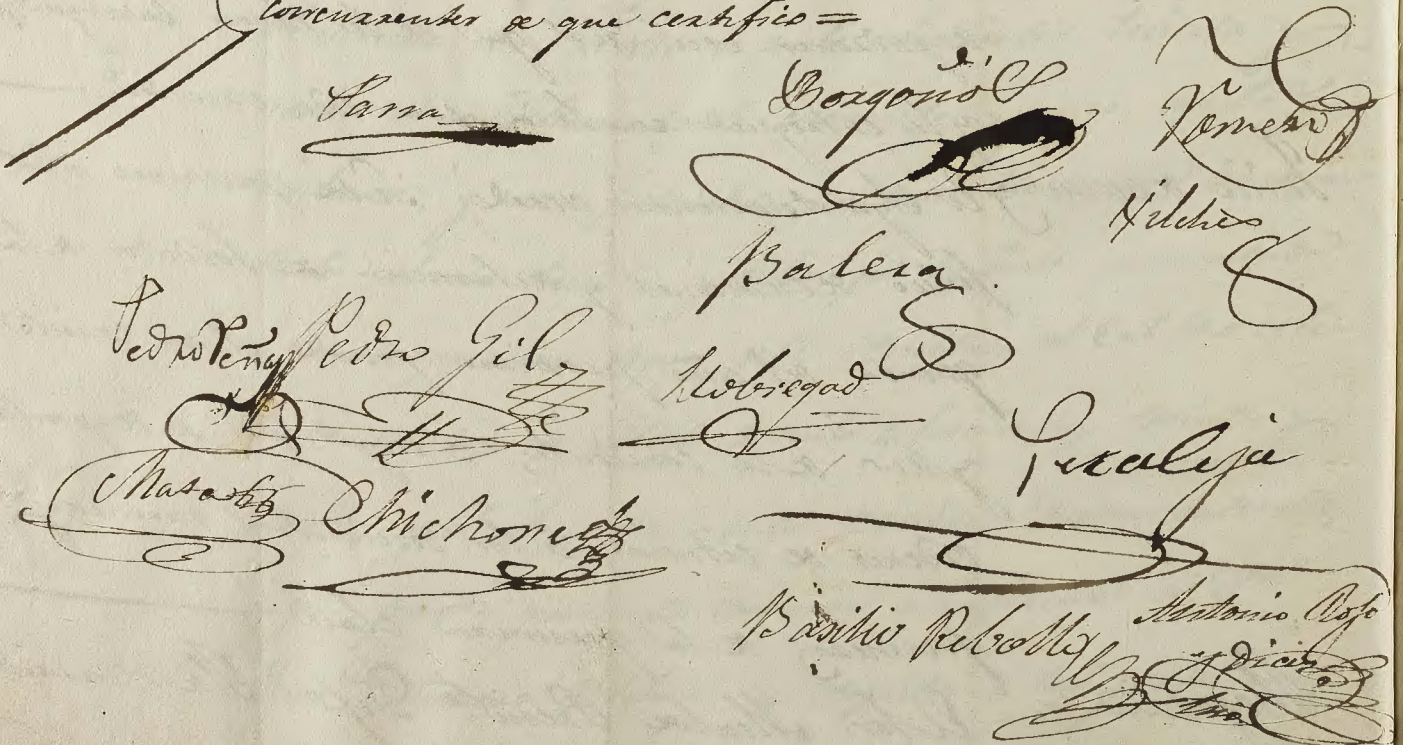 concurrentes de que certifico =
Parra
Borgoñó
Romero
Vilches
Balera
Pedro Peña
Pedro Gil
Llobregad
Peraleja
Mata
Chichones
Basilio Rebollo
Antonio Rojo
y Dicen
Srio